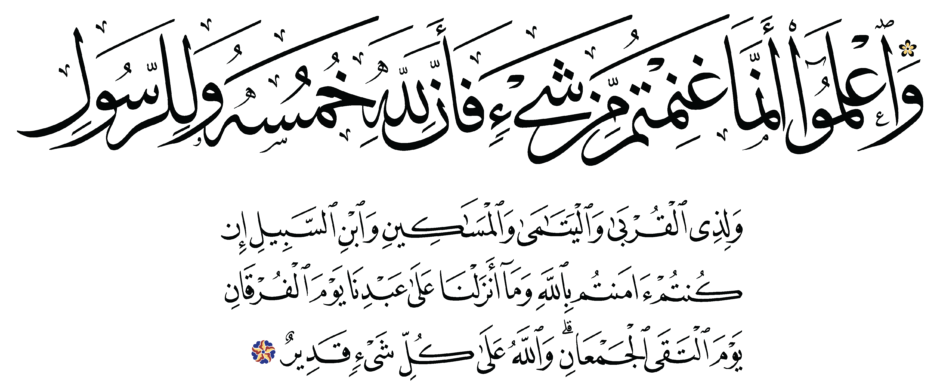 وَٱعْلَمُوٓا۟ أَنَّمَا غَنِمْتُم مِّن شَىْءٍ فَأَنَّ لِلَّهِ خُمُسَهُۥ وَلِلرَّسُولِ
وَلِذِى ٱلْقُرْبَىٰ وَٱلْيَتَـٰمَىٰ وَٱلْمَسَـٰكِينِ وَٱبْنِ ٱلسَّبِيلِ إِن
كُنتُمْ ءَامَنتُم بِٱللَّهِ وَمَآ أَنزَلْنَا عَلَىٰ عَبْدِنَا يَوْمَ ٱلْفُرْقَانِ
يَوْمَ ٱلْتَقَى ٱلْجَمْعَانِ ۗ وَٱللَّهُ عَلَىٰ كُلِّ شَىْءٍ قَدِيرٌ